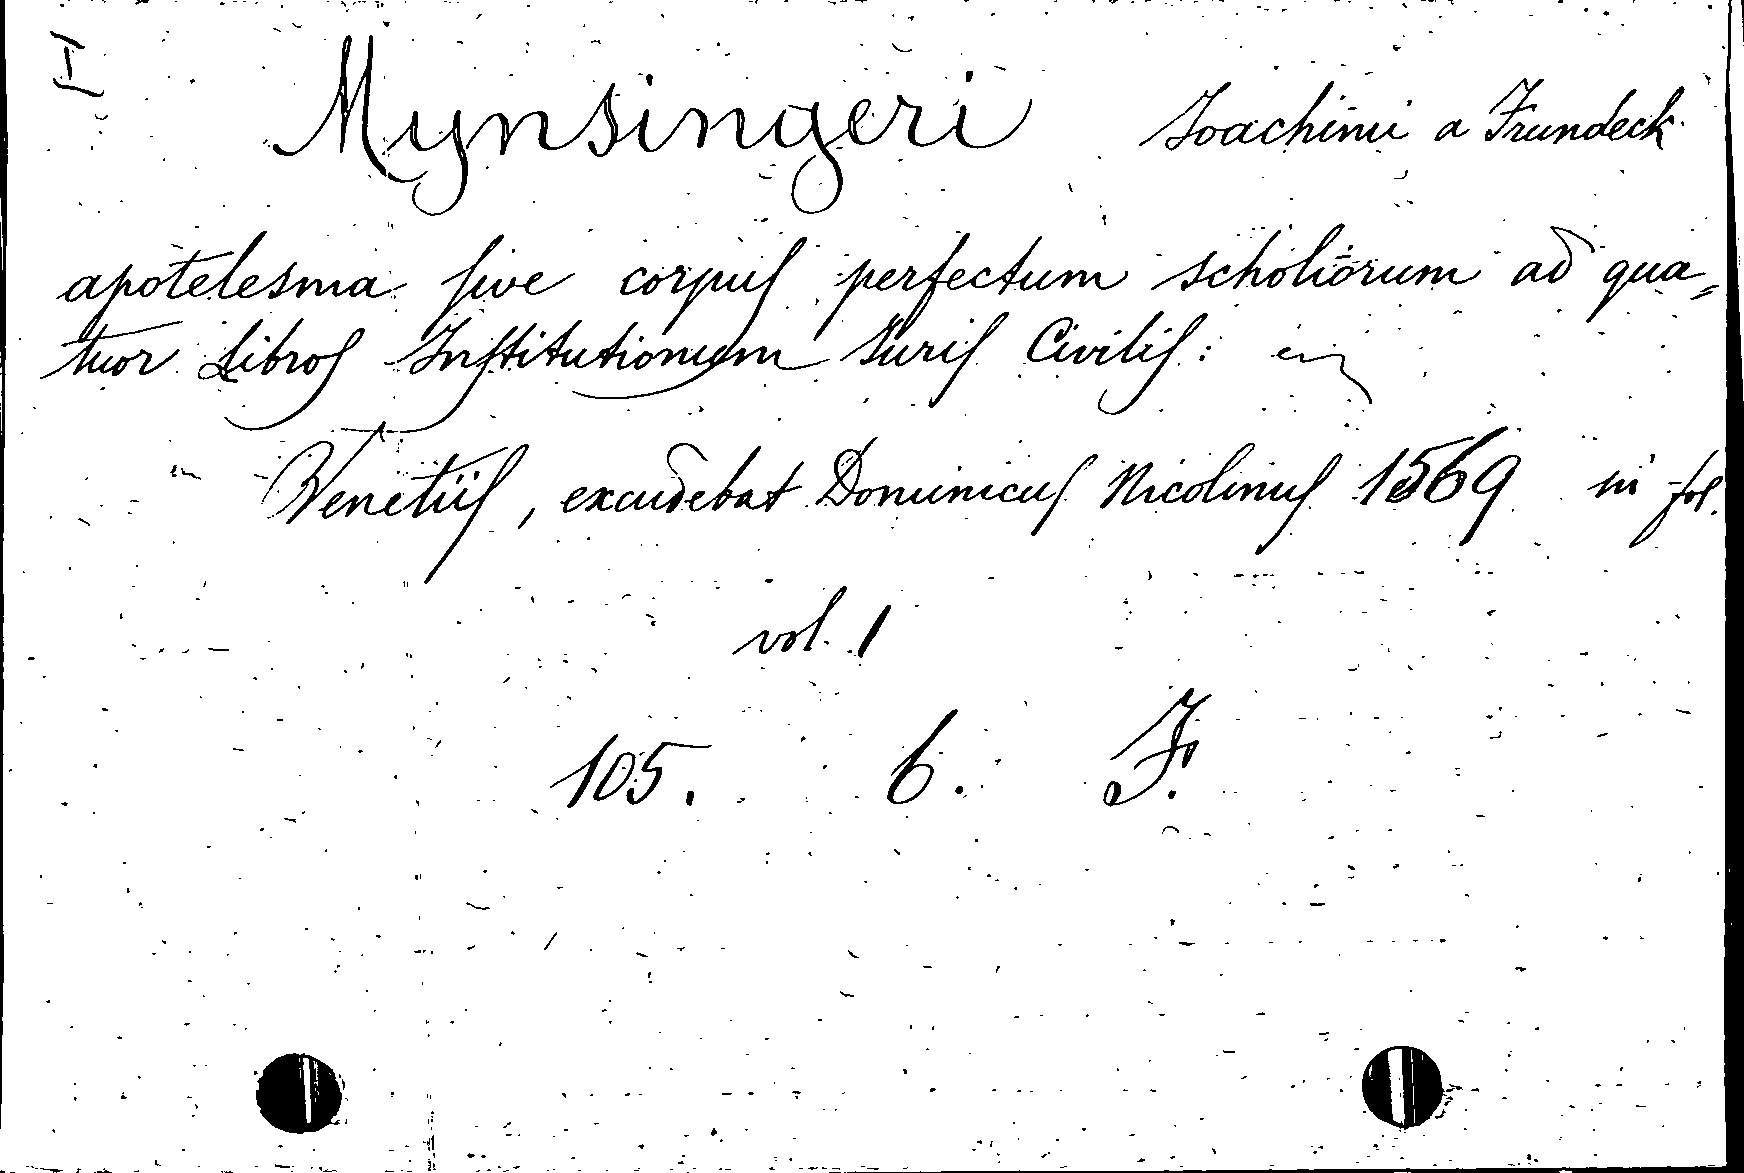 I
Mynsingeri Joachimi a Frundeck
apotelesma sive corpus perfectum scholiorum ad qua=
tuor Libros Institutionum Juris Civilis:
Venetiis, excudebat Dominicus Nicolinus 1569 in fol.
vol. 1
105. 6. F.